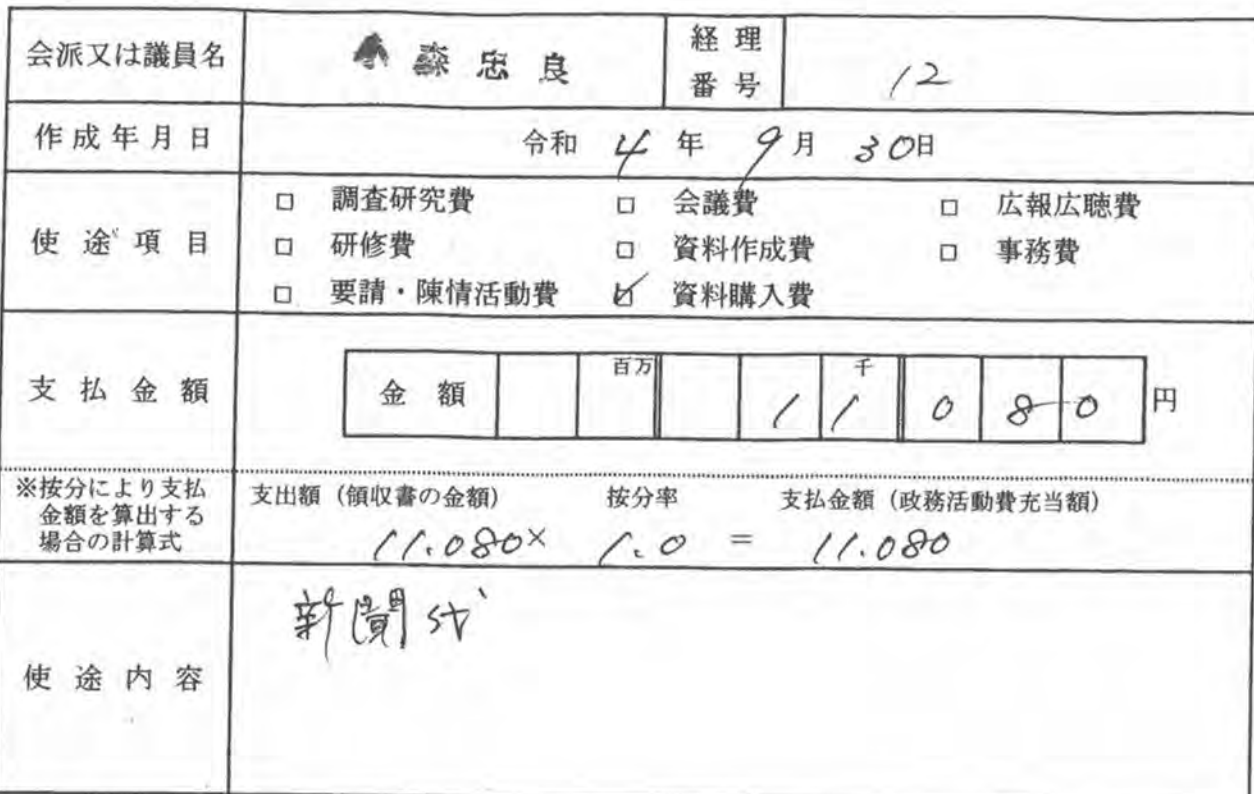 会派又は議員名 森忠良 経理番号 12
作成年月日 令和 4 年 9月 30日
使途項目 □ 調査研究費 □ 会議費 □ 広報広聴費
□ 研修費 □ 資料作成費 □ 事務費
□ 要請・陳情活動費 ☑ 資料購入費
支払金額 金額 百万 千 11080 円
※按分により支払金額を算出する場合の計算式 支出額(領収書の金額) 按分率 支払金額(政務活動費充当額)
11.080× 1.0 = 11.080
使途内容 新聞代